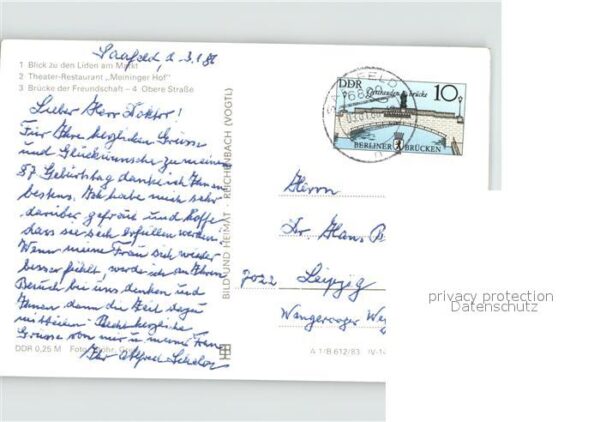 Saalfeld, d. 3.1.86
1 Blick zu den Liden am Markt
2 Theater-Restaurant „Meininger Hof“
3 Brücke der Freundschaft – 4 Obere Straße
Lieber Herr Doktor!
Für Ihre herzlichen Grüsse
und Glückwünsche zu meinem
87. Geburtstag danke ich Ihnen
bestens. Ich habe mich sehr
darüber gefreut und hoffe
dass sie sich erfüllen werden.
Wenn meine Frau sich wieder
besser fühlt, werde ich an Ihren
Besuch bei uns denken und
Ihnen dann die Zeit dazu
mitteilen. Recht herzliche
Grüsse von mir u. meiner Frau
Ihr Alfred
DDR 0,25 M Foto:
BILD UND HEIMAT REICHENBACH (VOGTL)
A 1/B 612/83 IV-14
DDR
10
BERLINER BRÜCKEN
Herrn
Dr. Hans
7022 Leipzig
Wangerooger
privacy protection
Datenschutz